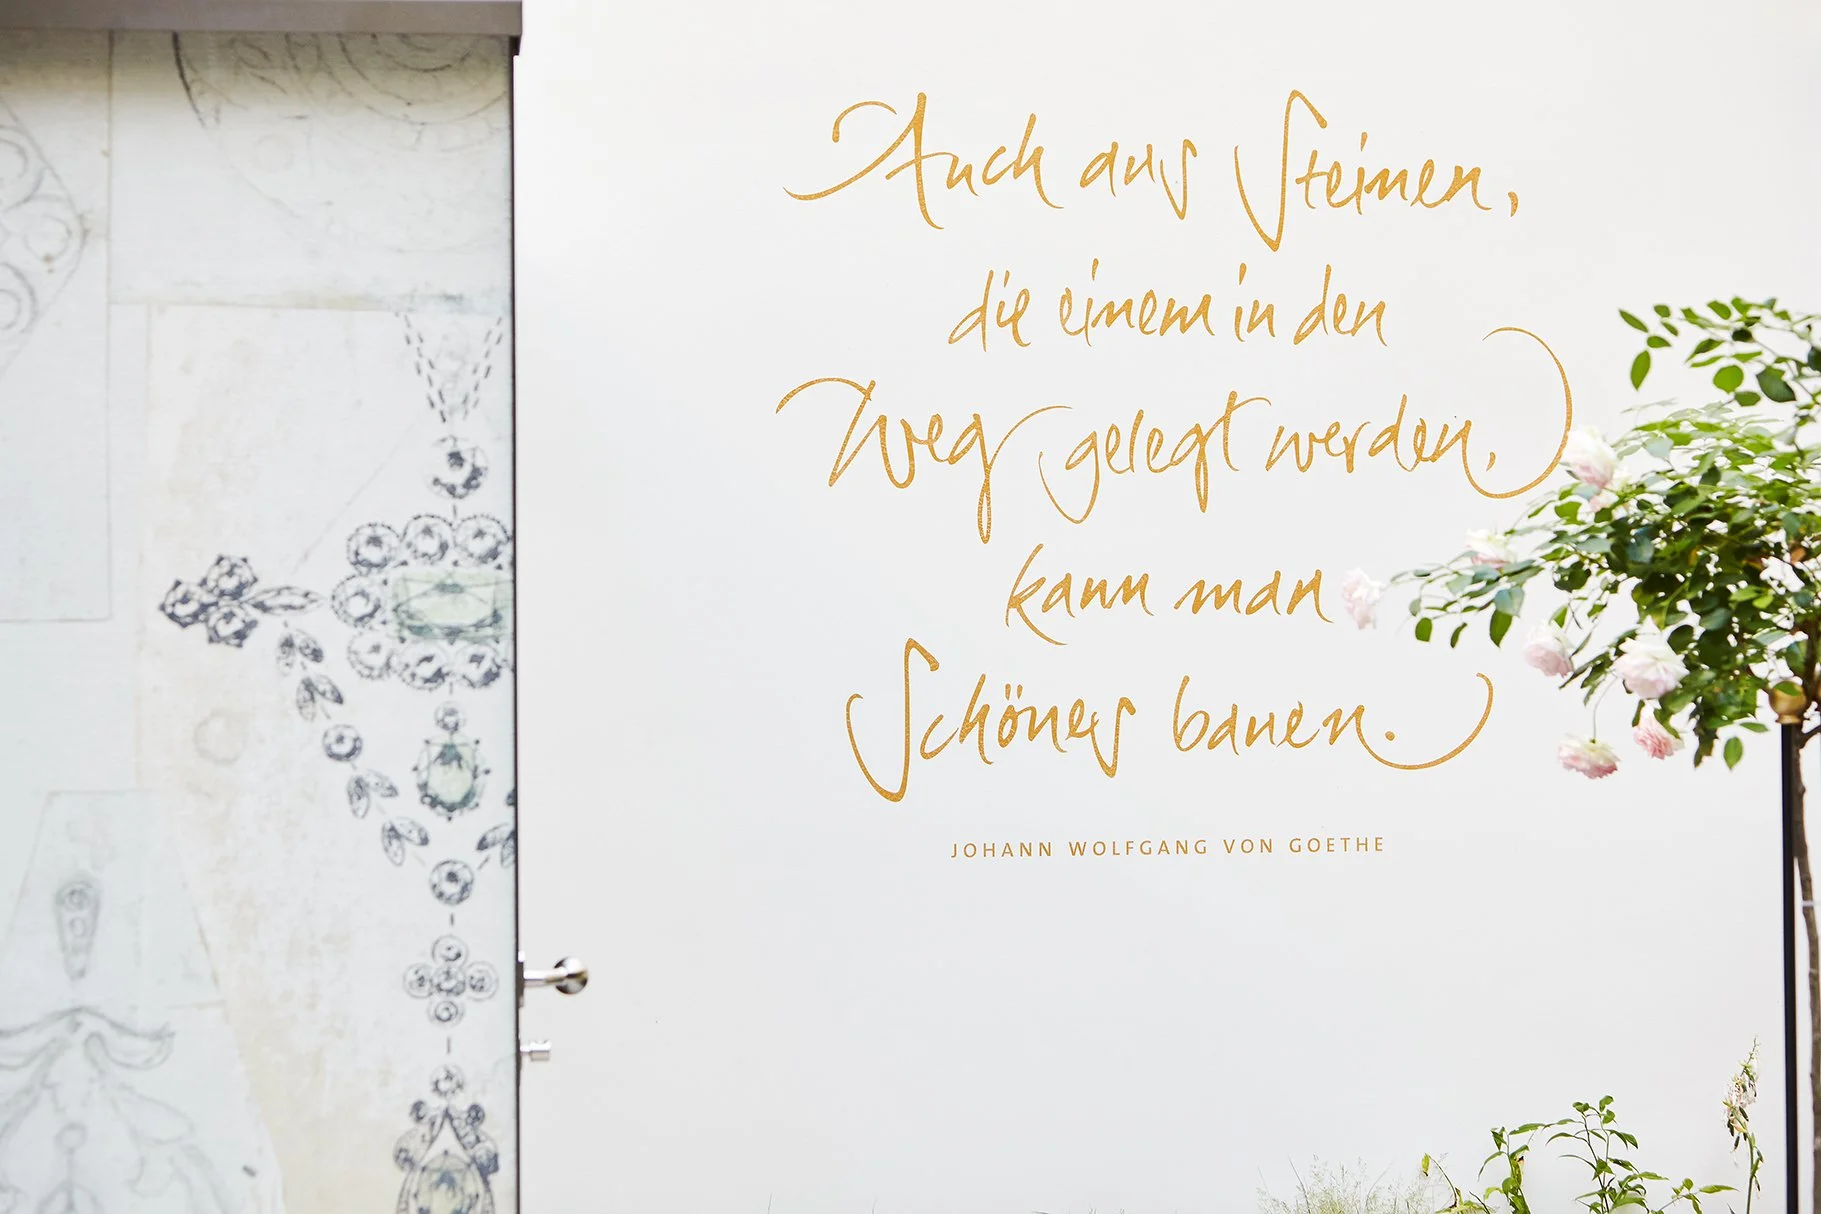 Auch aus Steinen,
die einem in den
Weg gelegt werden,
kann man
Schönes bauen.
JOHANN WOLFGANG VON GOETHE